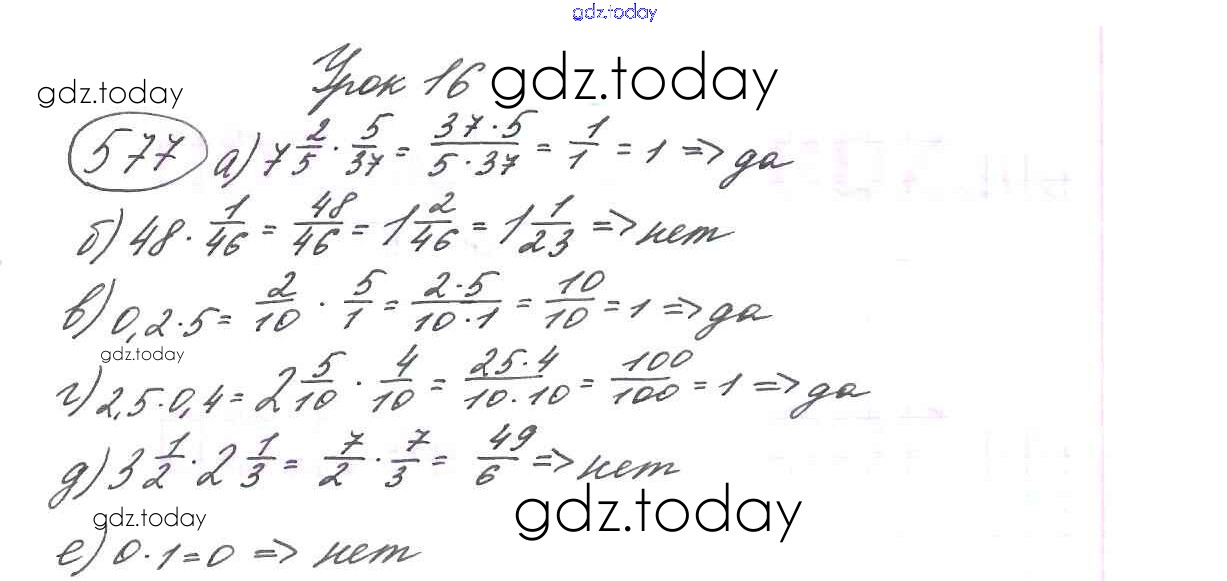 gdz.today
Урок 16 gdz.today
gdz.today
577 а) 7 2/5 · 5/37 = 37·5/5·37 = 1/1 = 1 => да
б) 48 · 1/46 = 48/46 = 1 2/46 = 1 1/23 => нет
в) 0,2·5 = 2/10 · 5/1 = 2·5/10·1 = 10/10 = 1 => да
gdz.today
г) 2,5·0,4 = 2 5/10 · 4/10 = 25·4/10·10 = 100/100 = 1 => да
д) 3 1/2 · 2 1/3 = 7/2 · 7/3 = 49/6 => нет
gdz.today
gdz.today
е) 0·1=0 => нет